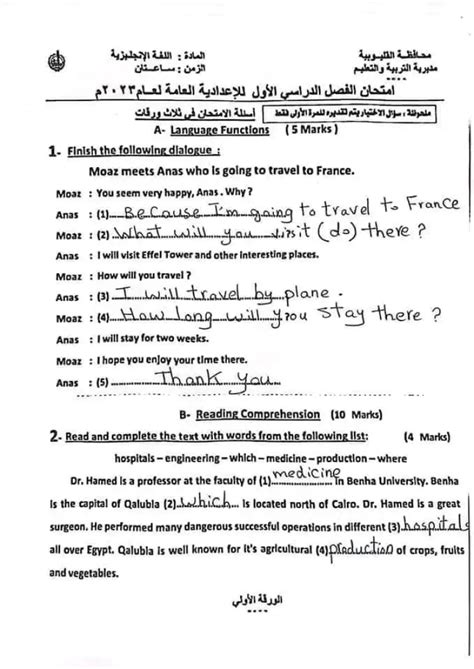 محافظة القليوبية
مديرية التربية والتعليم
المادة : اللغة الإنجليزية
الزمن : ساعتان
امتحان الفصل الدراسي الأول للإعدادية العامة لعام ٢٠٢٣م
ملحوظة : سؤال الاختيار يتم تقديره للمرة الأولى فقط
أسئلة الامتحان فى ثلاث ورقات
A- Language Functions ( 5 Marks )
1- Finish the following dialogue :
Moaz meets Anas who is going to travel to France.
Moaz : You seem very happy, Anas. Why ?
Anas : (1) Because I'm going to travel to France
Moaz : (2) What will you visit (do) there ?
Anas : I will visit Effel Tower and other interesting places.
Moaz : How will you travel ?
Anas : (3) I will travel by plane .
Moaz : (4) How long will you stay there ?
Anas : I will stay for two weeks.
Moaz : I hope you enjoy your time there.
Anas : (5) Thank you
B- Reading Comprehension (10 Marks)
2- Read and complete the text with words from the following list: (4 Marks)
hospitals – engineering – which – medicine – production – where
Dr. Hamed is a professor at the faculty of (1) medicine in Benha University. Benha
is the capital of Qalubia (2) which is located north of Cairo. Dr. Hamed is a great
surgeon. He performed many dangerous successful operations in different (3) hospitals
all over Egypt. Qalubia is well known for it's agricultural (4) production of crops, fruits
and vegetables.
الورقة الأولي